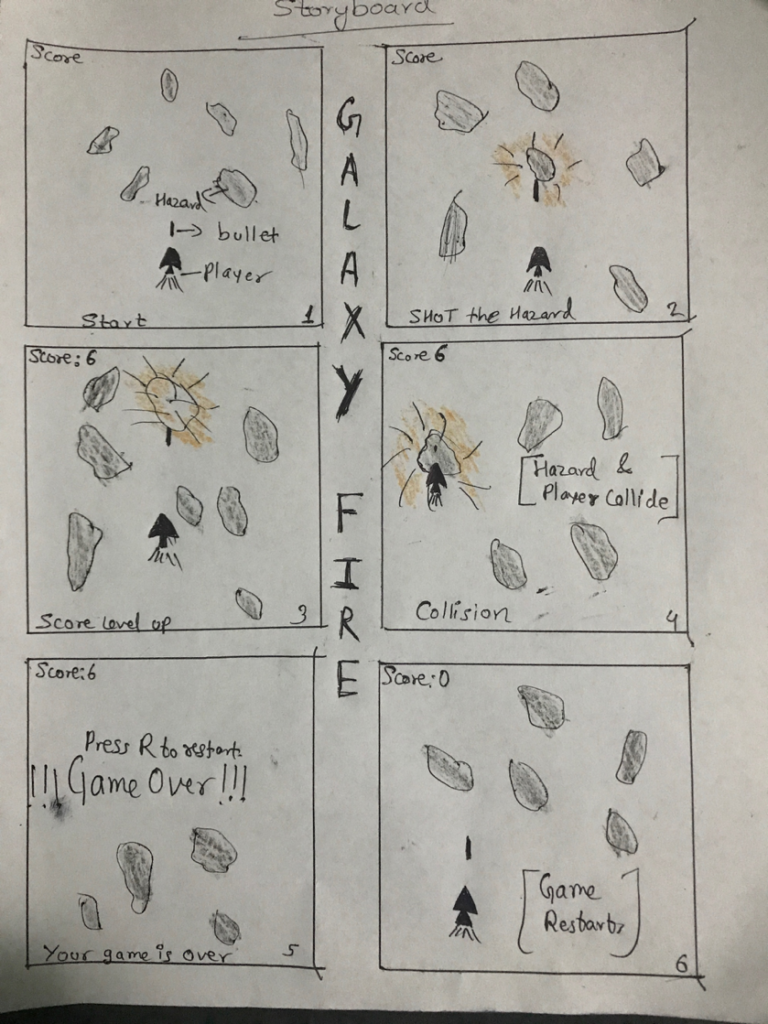 Storyboard
GALAXY FIRE
Score
Hazard
bullet
Player
Start
1
Score
SHOT the Hazard
2
Score: 6
Score Level up
3
Score 6
Hazard &
Player Collide
Collision
4
Score: 6
Press R to restart.
!!! Game Over !!!
Your game is over
5
Score: 0
Game
Restarts
6